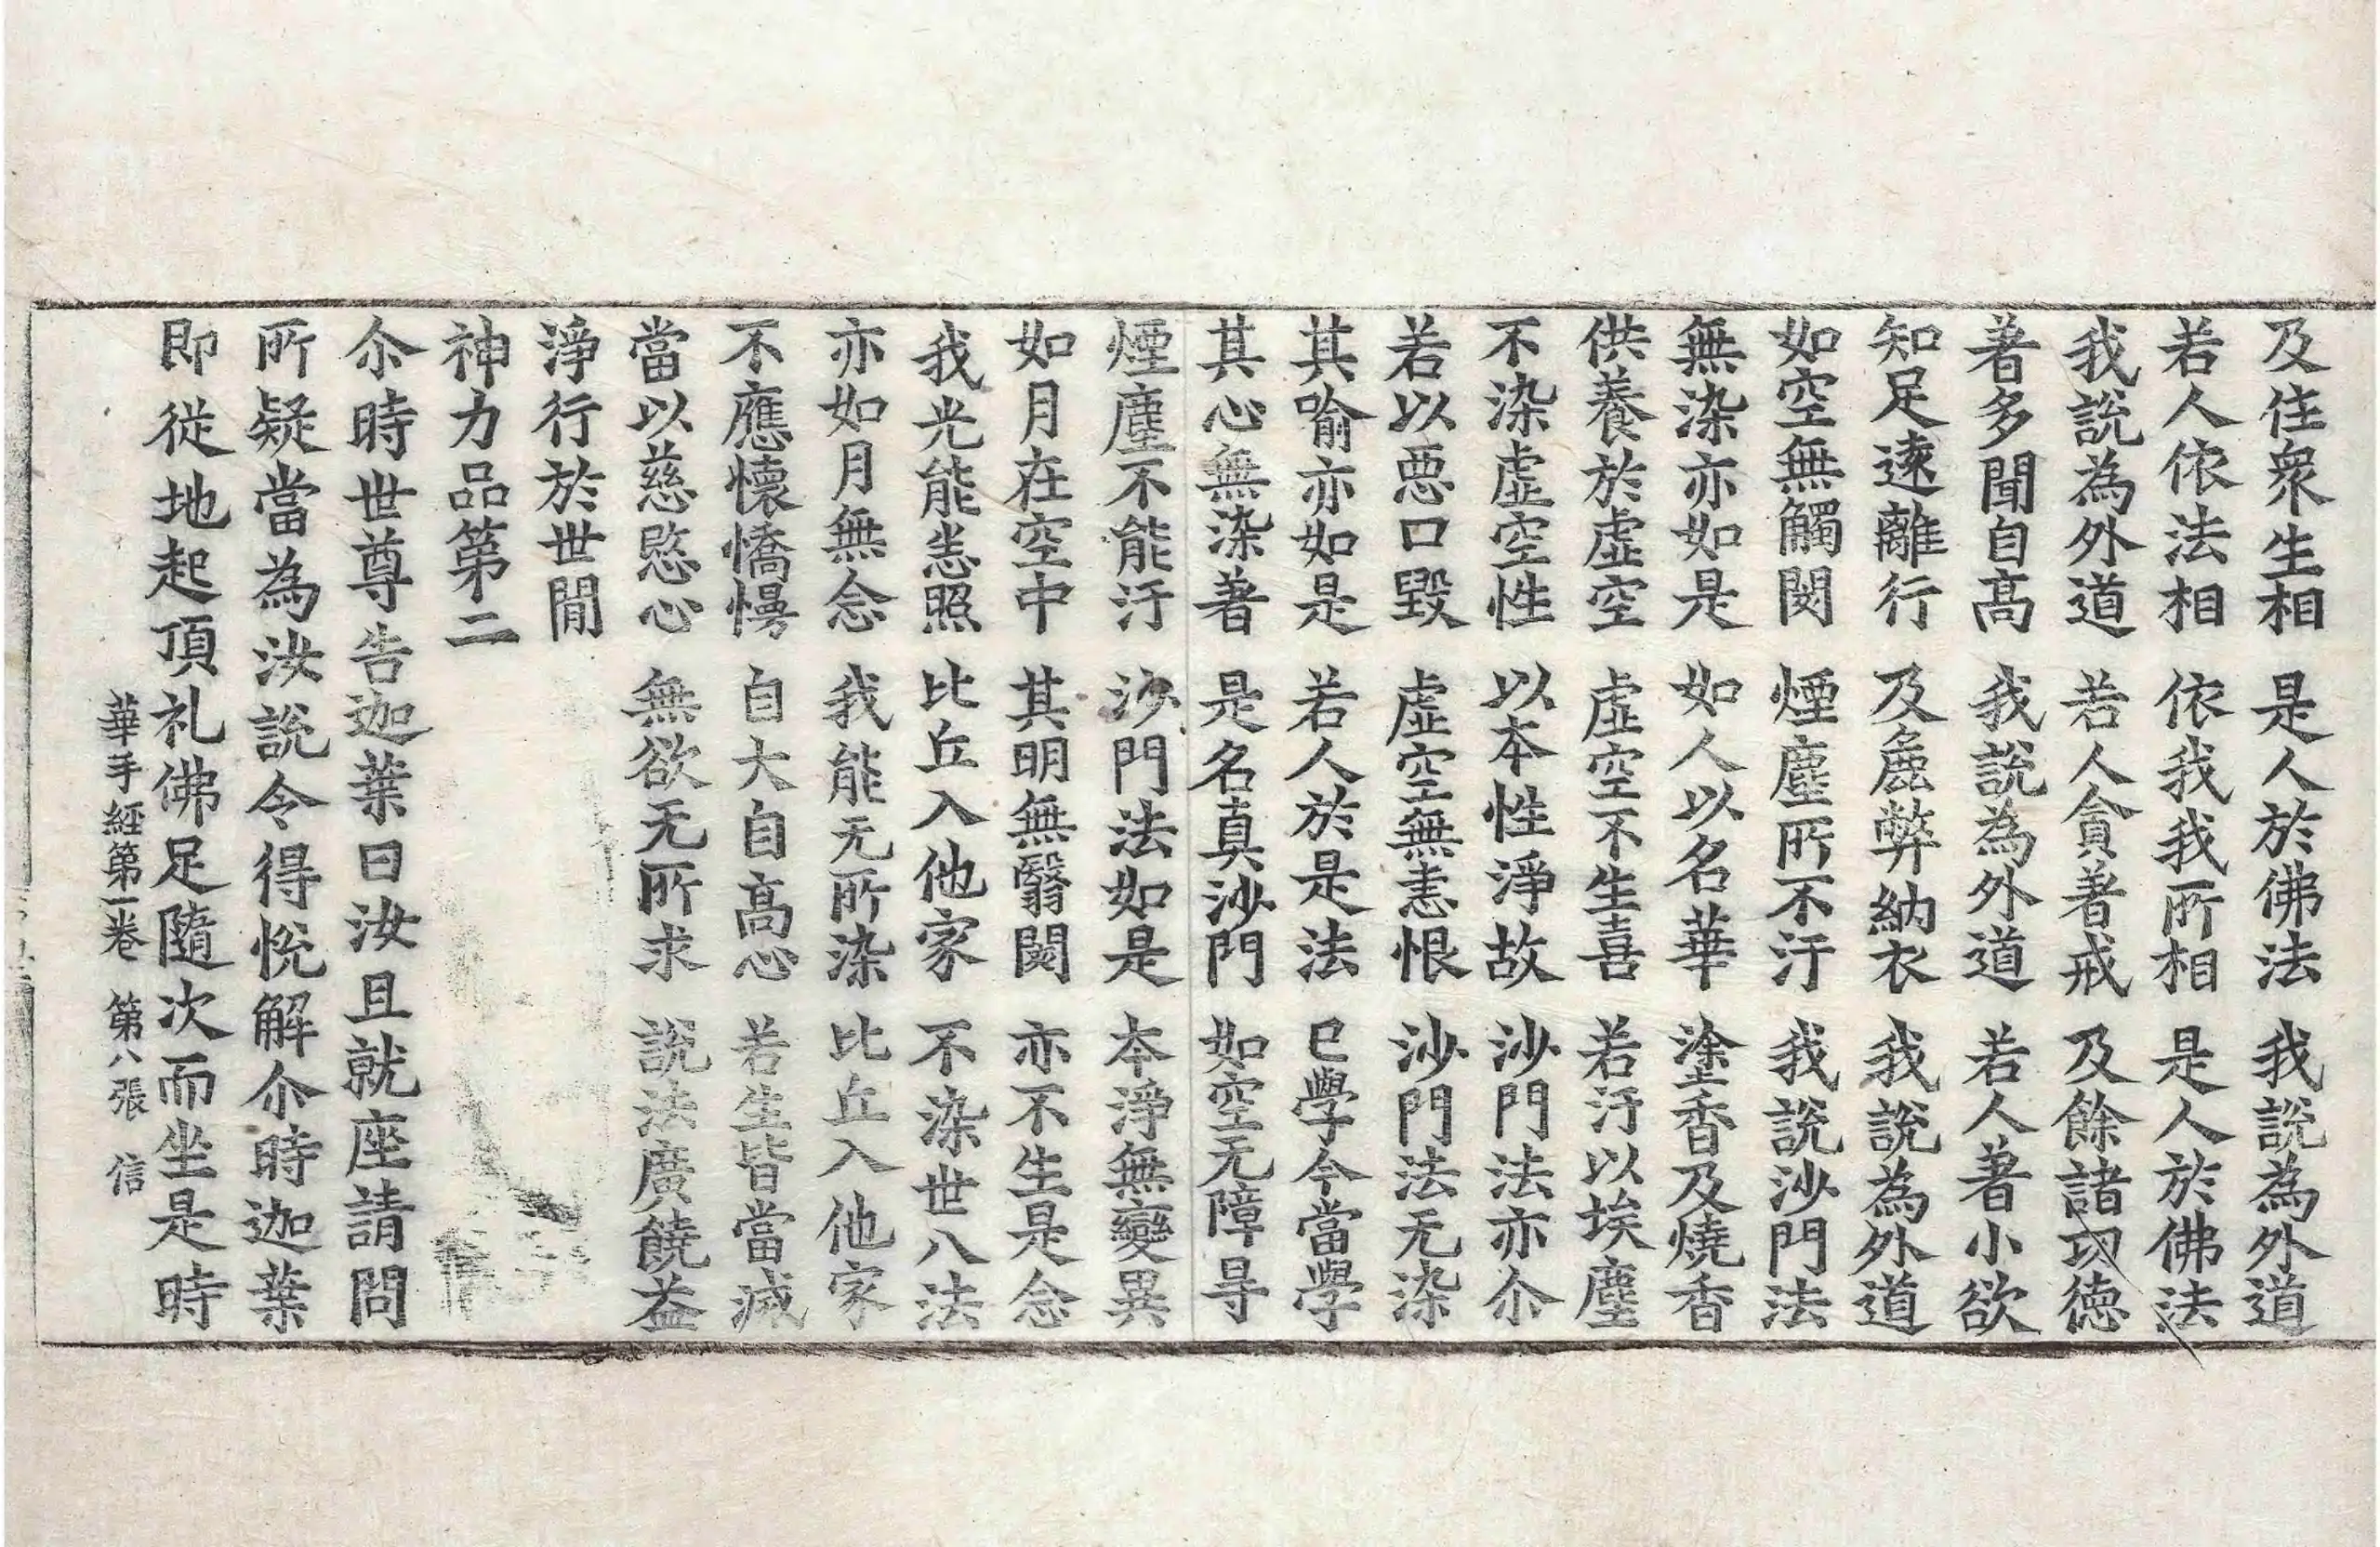 及住衆生相　是人於佛法　我說為外道
若人依法相　依我我所相　是人於佛法
我說為外道　若人貪著戒　及餘諸功德
著多聞自髙　我說為外道　若人著小欲
知足遠離行　及麁弊納衣　我說為外道
如空無觸閡　煙塵所不汙　我說沙門法
無染亦如是　如人以名華　塗香及燒香
供養於虛空　虛空不生喜　若汙以埃塵
不染虛空性　以本性淨故　沙門法亦尒
若以惡口毀　虛空無恚恨　沙門法无染
其喻亦如是　若人於是法　已學今當學
其心無染著　是名真沙門　如空无障㝵
煙塵不能汙　沙門法如是　本淨無變異
如月在空中　其明無翳閡　亦不生是念
我光能悉照　比丘入他家　不染世八法
亦如月無念　我能无所染　比丘入他家
不應懷憍慢　自大自髙心　若生皆當滅
當以慈愍心　無欲无所求　說法廣饒益
淨行於世閒
神力品第二
尒時世尊告迦葉曰汝且就座請問
所疑當為汝說令得悅解尒時迦葉
即從地起頂礼佛足隨次而坐是時
華手經第一卷　第八張　信